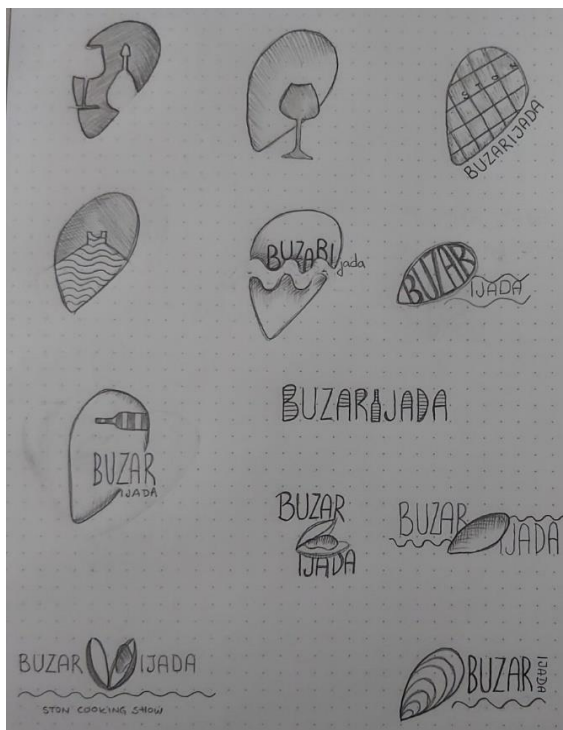 STON
BUZARIJADA
BUZARI
jada
BUZAR
IJADA
BUZARIJADA
BUZAR
IJADA
BUZAR
IJADA
BUZAR
IJADA
BUZAR IJADA
STON COOKING SHOW
BUZAR
IJADA